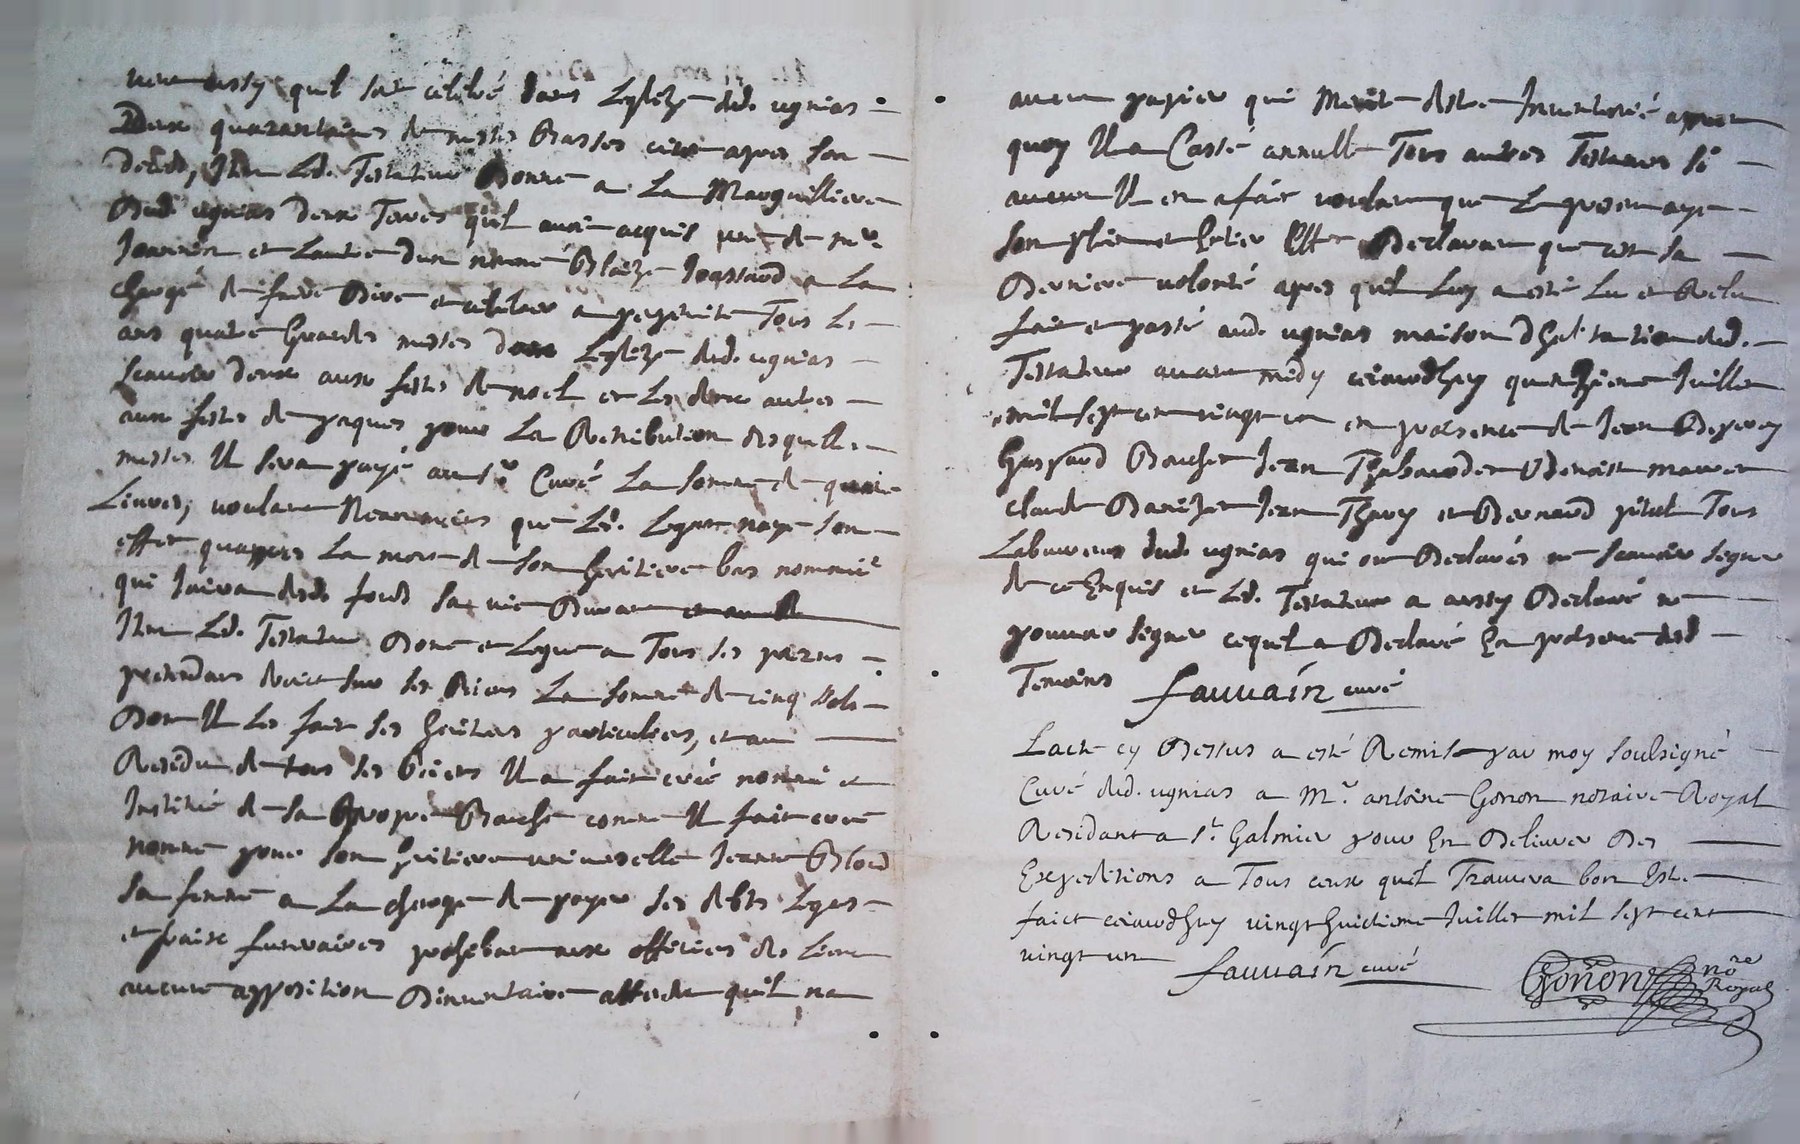 veut aussy quil soit celebré dans Leglize dud. ugnias
Deux quarantaines de messes basses cent apres son
deced, Item Led. Testateur Donne a La Marguilliere
dud. ugnias deux Terres quil avoit acquis une de mr.
et Lautre dun nommé Blaize Jossard a La
charge de faire dire et celebrer a perpetuité Tous Les
ans quatre Grandes messes dans Leglize dud. ugnias
scavoir deux aux festes de noel et Les deux autres
aux festes de paques pour La Retribution desquelles
messes Il sera payé au sr. Curé La somme de quatre
Livres, voulant Neanmoins que Led. Legat naye son
effet quapres La mort de son heritiere bas nommée
qui Jouira desd. fonds sa vie Durant
Item Led. Testateur Donne et Legue a Tous ses parens
pretendans droict sur ses Biens La somme de cinq sols
Dont Il Les fait ses heritiers particuliers, et au
Residu de tous ses biens Il a fait créé nommé et
Institué de sa propre Bouche comme Il fait crée
nomme pour son heritiere universelle Jeanne
sa femme a La charge de payer ses debts Legats
et fraix funeraires prohibant aux officiers des Lieux
aucune apposition Dinventaire attendu quil na
aucun papier qui Merite destre Inventorié apres
quoy Il a Cassé annullé Tous autres Testamens si
aucun Il en a fait voulant que Le present aye
son plein et Entier Effet Declarant que cest sa
Derniere volonté apres quil Luy a esté Lu et Relu
fait et passé aud. ugnias maison dhabitation dud.
Testateur avant midy cejourdhuy quinzieme Juillet
mil sept cent vingt un en presence de Jean
Gaspard Bouchet Jean Benoist
claude Jean et Bernard pitel Tous
Laboureurs dud. ugnias qui ont Declarés ne scavoir signer
de ce Enquis et Led. Testateur a aussy Declaré ne
pouvoir signer cequil a Declaré En presence desd.
Temoins fauvain curé
Lacte cy Dessus a esté Remise par moy soulsigné
Curé dud. ugnias a Mr. antoine Gonon notaire Royal
Residant a st. Galmier pour En Delivrer Des
Expeditions a Tous ceux quil Trouvera bon Estre
faict cejourdhuy vingt huictieme Juillet mil sept cent
vingt un fauvain curé
Gonon nore Royal